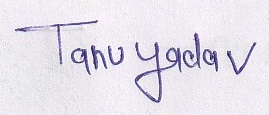 Tanu yadav